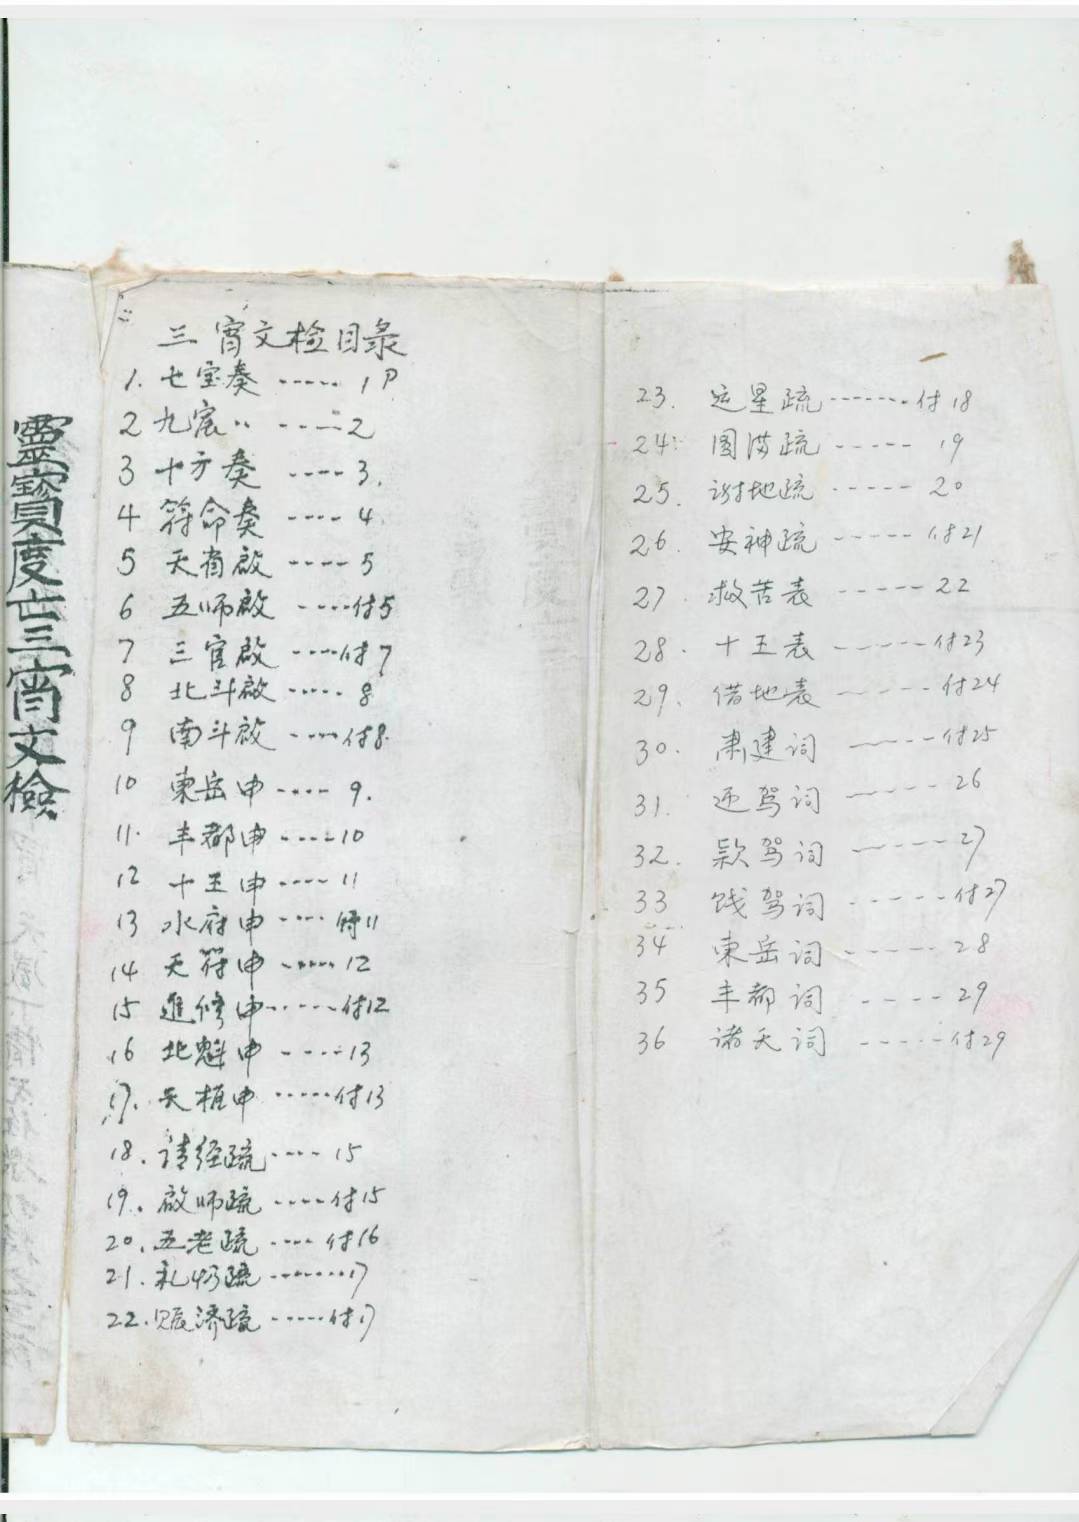 靈寶度亡三宵文檢
三宵文检目录
1. 七宝奏 ----- 1P
2 九宸〃 ----- 2
3 十方奏 ---- 3.
4 符命奏 ---- 4.
5 天省啟 ---- 5
6 五师啟 ----付5
7 三官啟 ----付7
8 北斗啟 ----- 8
9 南斗啟 ----付8.
10 東岳申 ---- 9.
11. 丰都申 ----10
12 十王申 ---- 11
13 水府申 ---- 付11
14 天符申 ----- 12
15 進修申------付12
16 北魁申 ----13
17. 天植申 -----付13
18. 请经疏---- 15
19. 啟师疏 ----付15
20. 五老疏 ---- 付16
21. 礼 疏 -------17
22. 赈济疏 -----付17
23. 运星疏-------付18
24. 圆满疏 ----- 19
25. 谢地疏 ----- 20
26. 安神疏 ----- 付21
27 救苦表 ----- 22
28. 十王表 -----付23
29. 借地表 ---- 付24
30. 肃建词 -----付25
31. 迎驾词 ----- 26
32. 款驾词 -----27
33 饯驾词 -----付27
34 東岳词 ----- 28
35 丰都词 ---- 29
36 诸天词 -----付29